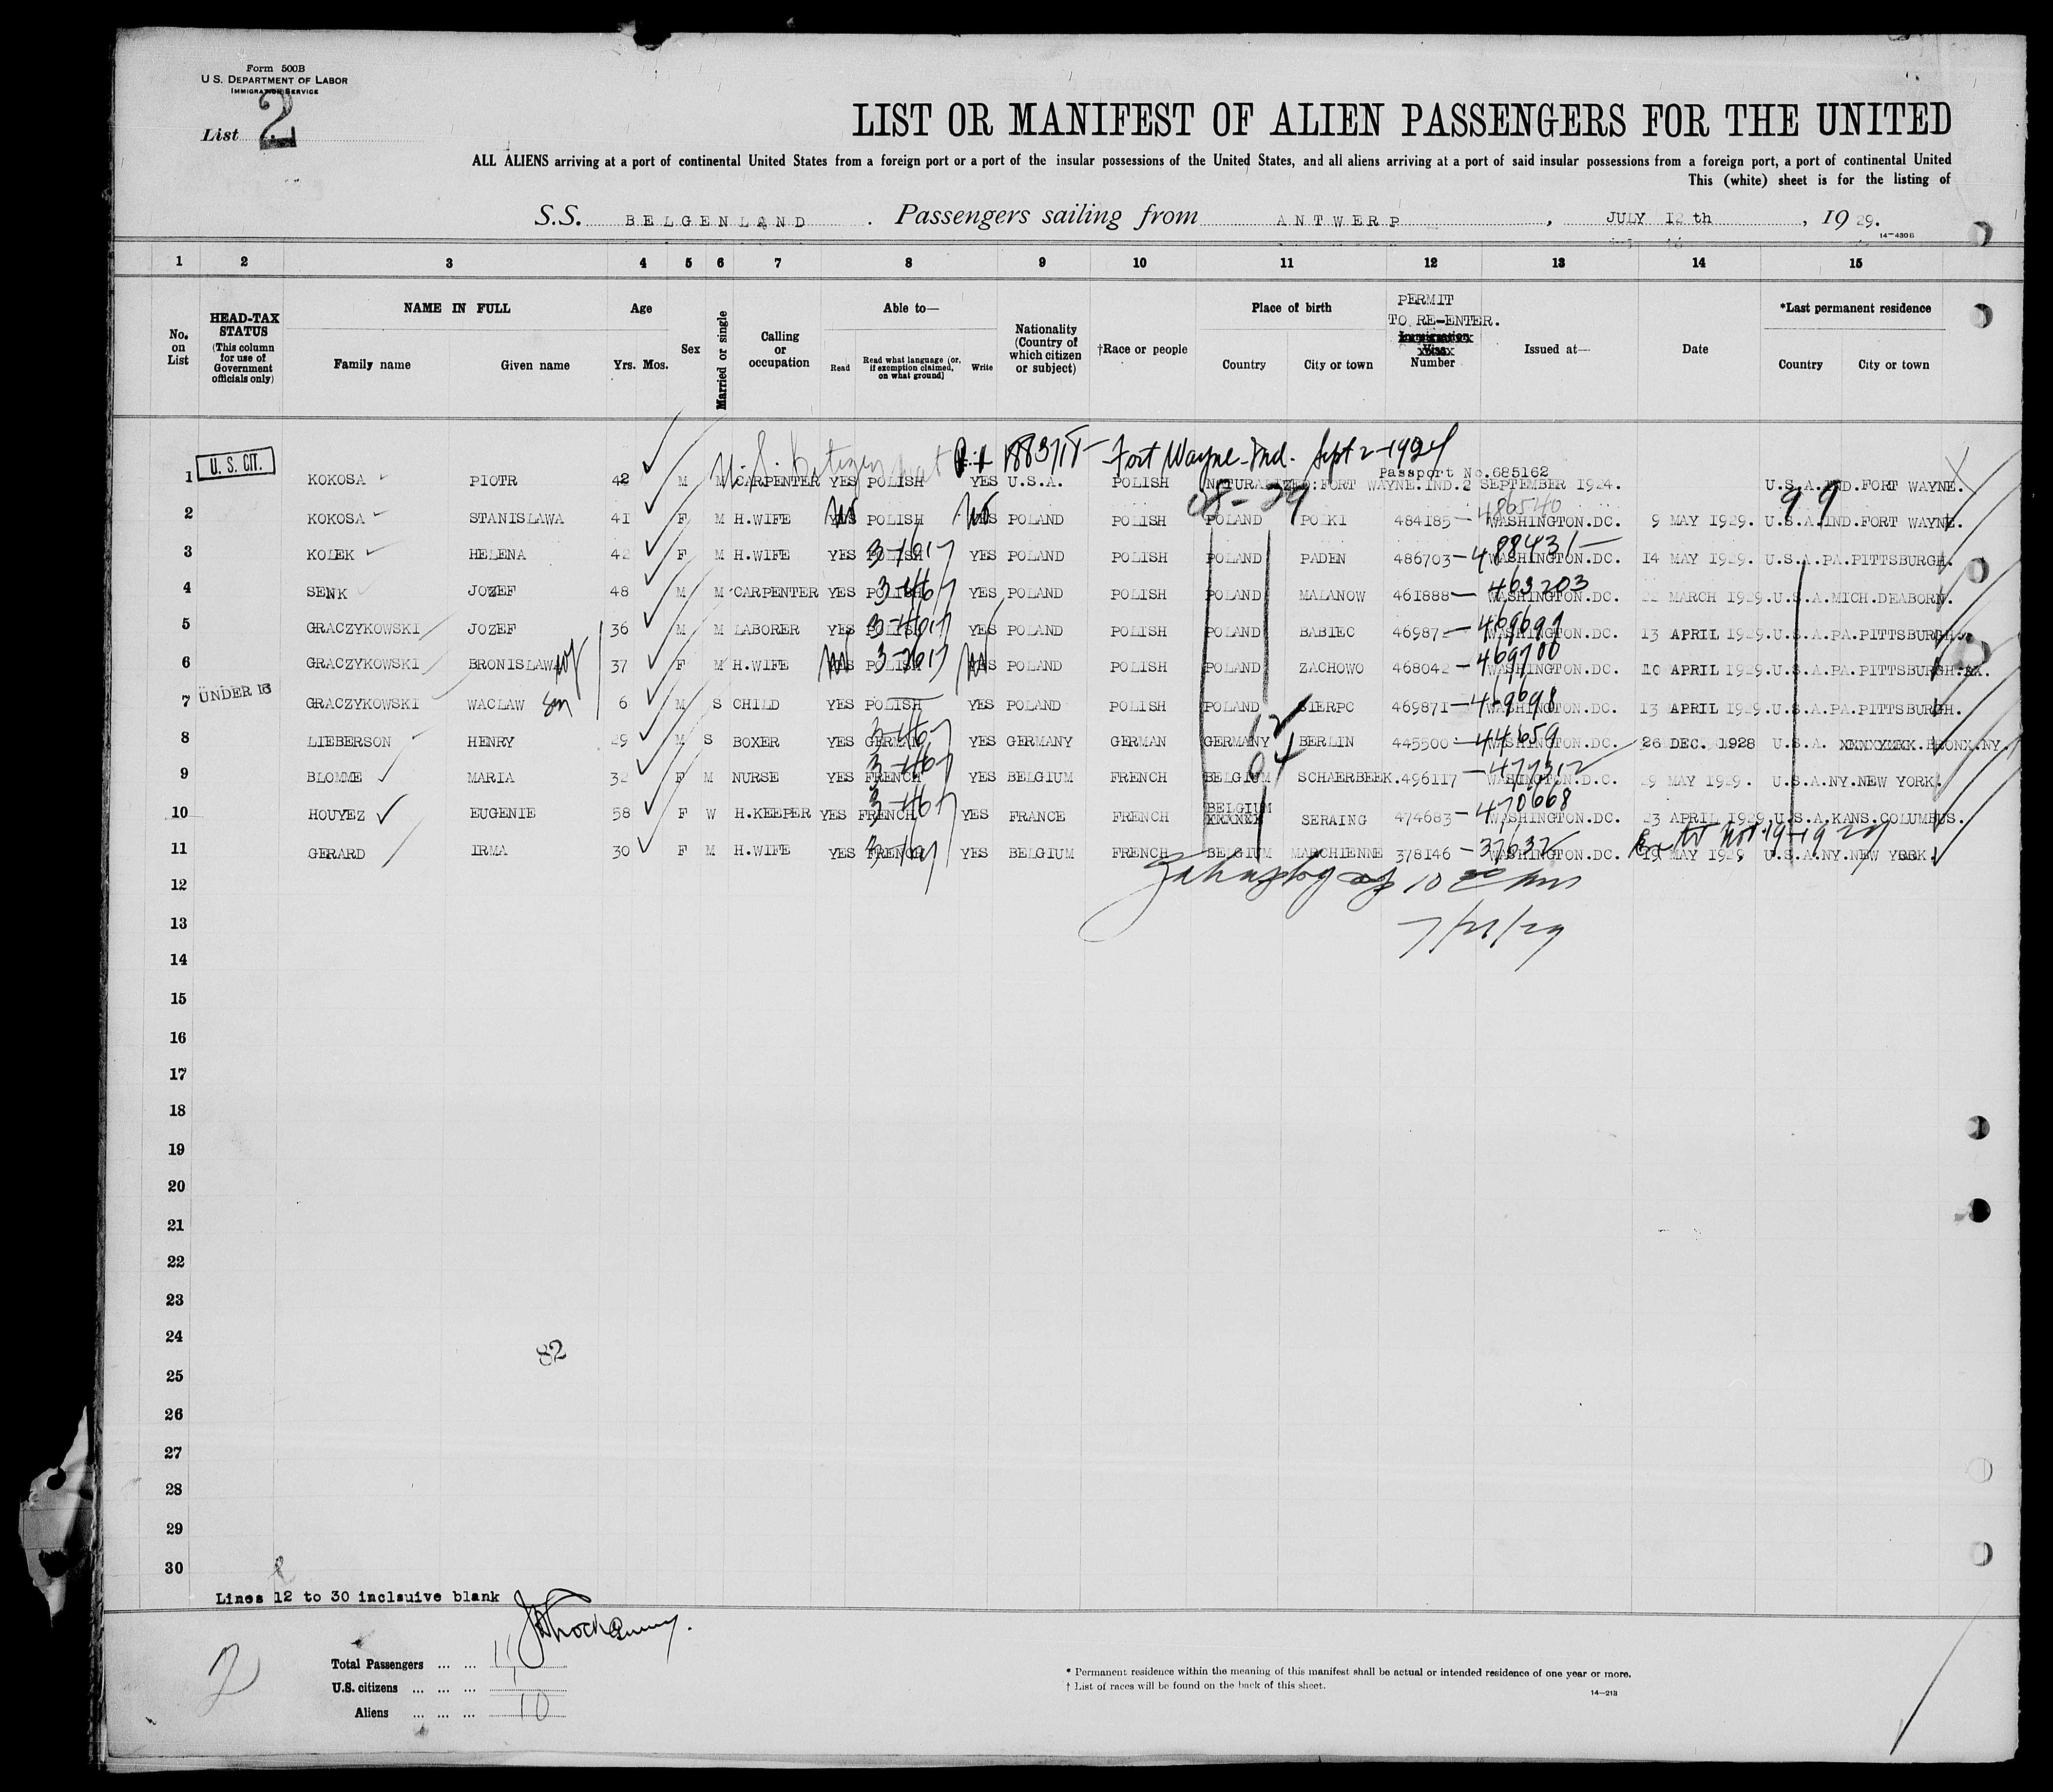 Form 500B
U.S. DEPARTMENT OF LABOR
IMMIGRATION SERVICE
List 2
LIST OR MANIFEST OF ALIEN PASSENGERS FOR THE UNITED
ALL ALIENS arriving at a port of continental United States from a foreign port or a port of the insular possessions of the United States, and all aliens arriving at a port of said insular possessions from a foreign port, a port of continental United
This (white) sheet is for the listing of
S.S. BELGENLAND. Passengers sailing from ANTWERP, JULY 12 th, 1929.
14-430B
1 2 3 4 5 6 7 8 9 10 11 12 13 14 15
No. on List
HEAD-TAX STATUS (This column for use of Government officials only)
NAME IN FULL Family name Given name
Age Yrs. Mos.
Sex
Married or single
Calling or occupation
Able to— Read Read what language (or, if exemption claimed, on what ground) Write
Nationality (Country of which citizen or subject)
†Race or people
Place of birth Country City or town
PERMIT TO RE-ENTER. Immigration Visa Number
Issued at—
Date
*Last permanent residence Country City or town
U.S. Citizen 1883715 Fort Wayne-Ind. Sept 2-1924
Passport No.685162
1 U.S. CIT. KOKOSA PIOTR 42 M M CARPENTER YES POLISH YES U.S.A. POLISH NATURALIZED:FORT WAYNE.IND.2 SEPTEMBER 1924. U.S.A.IND.FORT WAYNE.
08-29 486540 99
2 KOKOSA STANISLAWA 41 F M H.WIFE YES POLISH YES POLAND POLISH POLAND POLKI 484185 WASHINGTON.DC. 9 MAY 1929. U.S.A.IND.FORT WAYNE.
3 KOLEK HELENA 42 F M H.WIFE YES POLISH YES POLAND POLISH POLAND PADEN 486703-488431 WASHINGTON.DC. 14 MAY 1929. U.S.A.PA.PITTSBURGH.
4 SENK JOZEF 48 M M CARPENTER YES POLISH YES POLAND POLISH POLAND MALANOW 461888-463203 WASHINGTON.DC. 22 MARCH 1929.U.S.A.MICH.DEABORN.
5 GRACZYKOWSKI JOZEF 36 M M LABORER YES POLISH YES POLAND POLISH POLAND BABIEC 46987-469699 WASHINGTON.DC. 13 APRIL 1929.U.S.A.PA.PITTSBURGH.
6 GRACZYKOWSKI BRONISLAWA wf 37 F M H.WIFE YES POLISH YES POLAND POLISH POLAND ZACHOWO 468042-469700 WASHINGTON.DC. 10 APRIL 1929.U.S.A.PA.PITTSBURGH.
7 UNDER 16 GRACZYKOWSKI WACLAW son 6 M S CHILD YES POLISH YES POLAND POLISH POLAND SIERPC 469871-469698 WASHINGTON.DC. 13 APRIL 1929.U.S.A.PA.PITTSBURGH.
8 LIEBERSON HENRY 29 M S BOXER YES GERMAN YES GERMANY GERMAN GERMANY BERLIN 445500-44659 WASHINGTON.DC. 26 DEC. 1928 U.S.A. BRONX.NY.
9 BLOMME MARIA 32 F M NURSE YES FRENCH YES BELGIUM FRENCH BELGIUM SCHAERBEEK.496117-477312 WASHINGTON.D.C. 29 MAY 1929. U.S.A.NY.NEW YORK.
10 HOUYEZ EUGENIE 58 F W H.KEEPER YES FRENCH YES FRANCE FRENCH BELGIUM SERAING 474683-470668 WASHINGTON.DC. 23 APRIL 1929.U.S.A.KANS.COLUMBUS.
11 GERARD IRMA 30 F M H.WIFE YES FRENCH YES BELGIUM FRENCH BELGIUM MARCHIENNE 378146-37632 WASHINGTON.DC. 19 MAY 1929 U.S.A.NY.NEW YORK.
12
13
14
15
16
17
18
19
20
21
22
23
24
82
25
26
27
28
29
30
Lines 12 to 30 inclsuive blank
2
Total Passengers ... ... 11
U.S. citizens ... ... ... 1
Aliens ... ... ... 10
* Permanent residence within the meaning of this manifest shall be actual or intended residence of one year or more.
† List of races will be found on the back of this sheet.
14-213